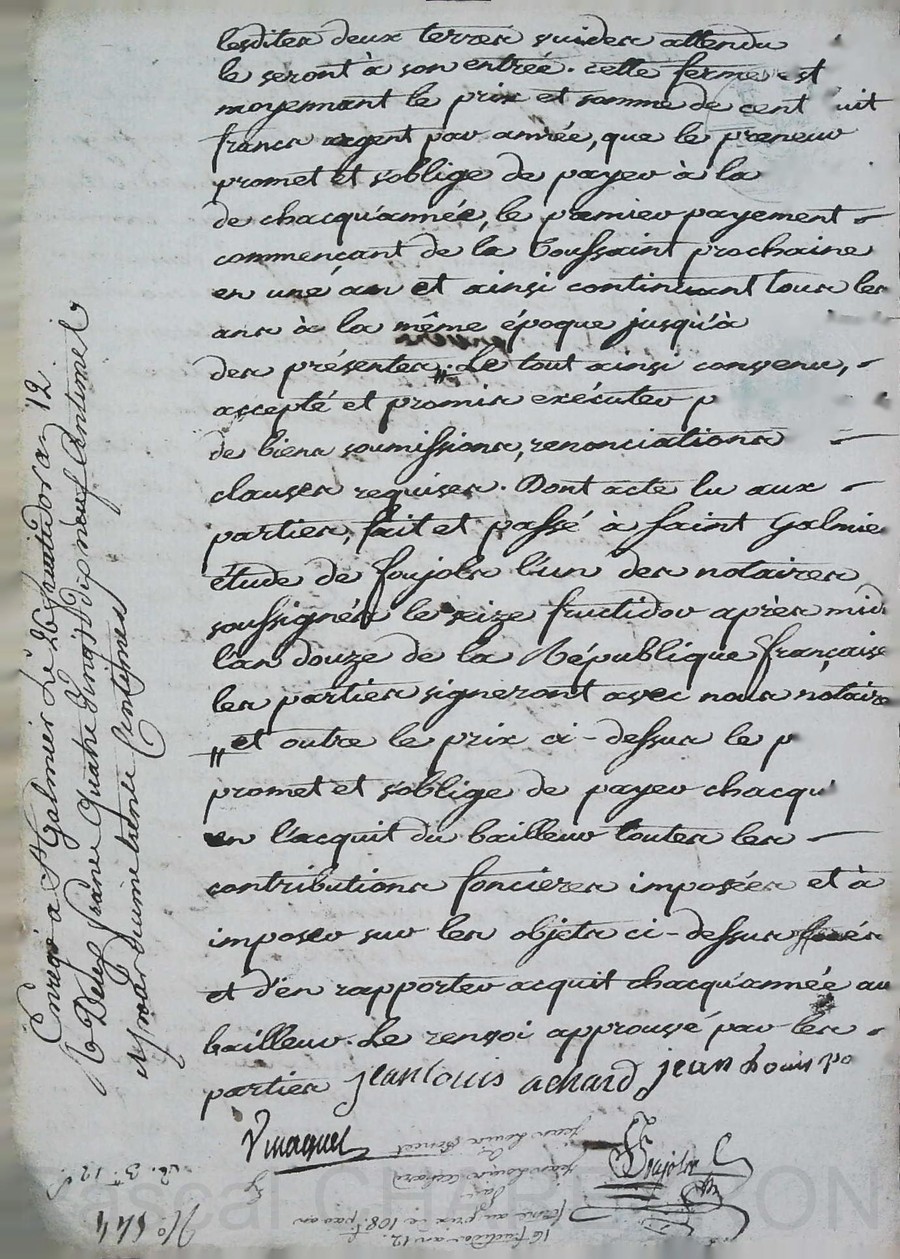 lesdites deux terres vuides attendu
le seront à son entrée. cette ferme est
moyennant le prix et somme de cent uit
francs argent par année, que le preneur
promet et s'oblige de payer à la
de chacqu'année, le premier payement
commencant de la Toussaint prochaine
en une an et ainsi continuant tous les
ans à la même époque jusqu'à
des présentes. Le tout ainsi convenu,
accepté et promis exécuter p
de biens soumissions, renonciations
clauses requises. Dont acte lu aux
parties, fait et passé à Saint Galmie
étude de foujols l'un des notaires
soussignés le seize fructidor après mid
l'an douze de la République française
les parties signeront avec nous notaire
" et outre le prix ci-dessus le p
promet et s'oblige de payer chacqu'
en l'acquit du bailleur toutes les
contributions foncieres imposées et à
imposer sur les objets ci-dessus
et d'en rapporter acquit chacqu'année au
bailleur. Le renvoi approuvé par les
parties jean louis achard jean Louis
Foujols
Enregé à St Galmier Le 26 fructidor an 12
R Deux francs quatre vingt dix neuf Centimes
Centimes
16 fructidor an 12.
ferme au prix de 108 f. par an
par
jean louis achard
jean louis
No 544
Pascal CHARBONNON